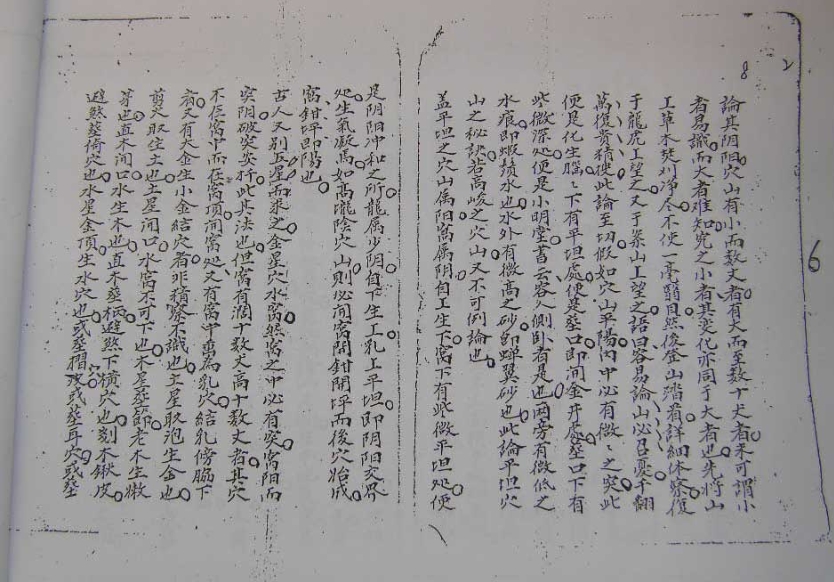 論其阴阳穴山有小而数丈者有大而至数十丈者未可謂小
者易識而大者难知究之小者其变化亦同于大者也先将山
工草木焚刈净尽不使一毫翳目然後登山踏看詳細体察復
于龍虎工望之又于案山工望之語曰容易論山必召憂千翻
萬復貴精使此論至切假如穴山平陽內中必有微〻之突此
便是化生腦〻下有平坦處便是葬口即间金井處葬口下有
些微深处便是小明堂昔云容人側卧者是也两旁有微低之
水痕即蝦鬚水也水外有微高之砂即蝉翼砂也此論平坦穴
山之秘訣若高峻之穴山又不可例論也
盖平坦之穴山属阳窩属阴自工生下窩下有些微平坦处便
是阴阳冲和之所龍属少阴自下生工乳上平坦即阴阳交界
处生氣凝焉如高隴陰穴山則必间窩间鉗開坪而後穴始成
窩鉗坪即陽也
古人又別五星而求之金星穴水窩然窩之中必有突窩阳而
突阴破突安扦此其法也但窩有濶十数丈高十数丈者其穴
不在窩中而在窩顶间窩处又有窩中蔔為乳穴結乳傍腦下
者又有大金生小金結穴者非積察不識也土星取泡生金也
剪火取住土也土星间口水窩不可下也木星葬節老木生嫩
芽也直木间口水生木也直木葬柄避煞下横穴也刻木鍬皮
避煞葬倚穴也水星金頂生水穴也或葬摺
穴
或葬耳穴或葬
8
2
6